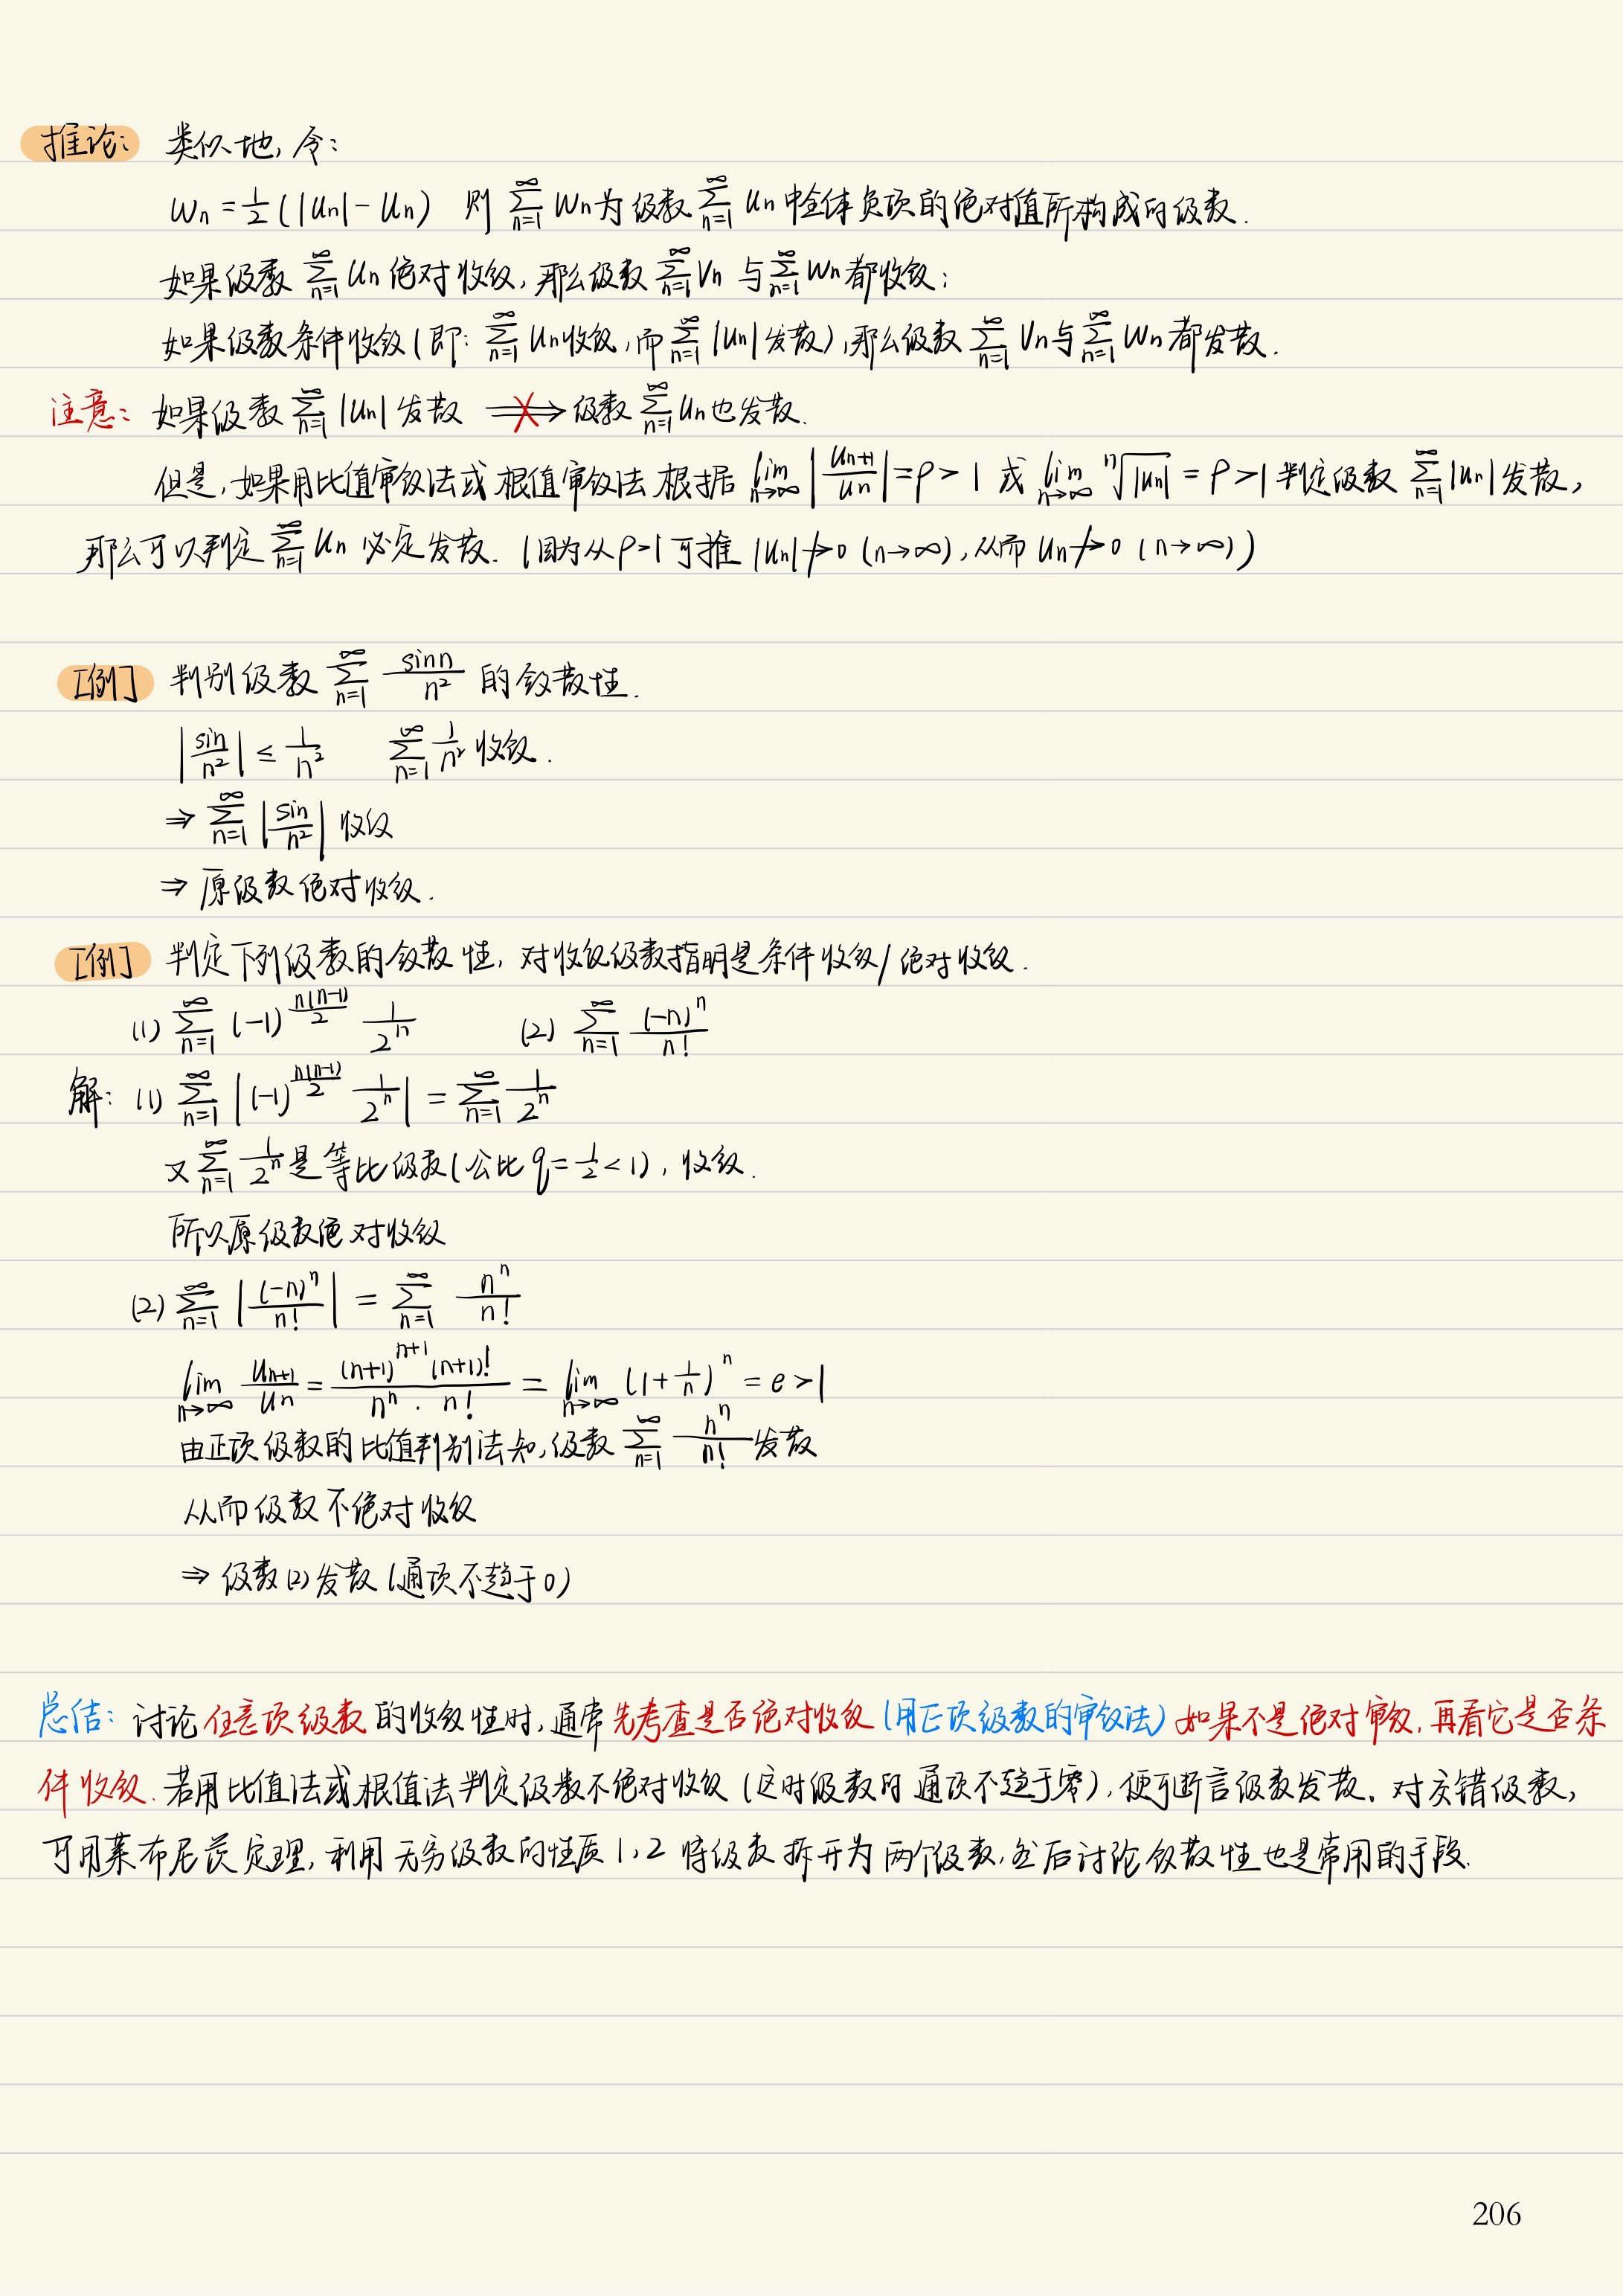 推论: 类似地, 令:
Wn = 1/2 (|Un| - Un) 则 ∑_{n=1}^∞ Wn为级数 ∑_{n=1}^∞ Un中全体负项的绝对值所构成的级数.
如果级数 ∑_{n=1}^∞ Un绝对收敛, 那么级数 ∑_{n=1}^∞ Vn 与 ∑_{n=1}^∞ Wn都收敛;
如果级数条件收敛(即: ∑_{n=1}^∞ Un收敛, 而 ∑_{n=1}^∞ |Un|发散), 那么级数 ∑_{n=1}^∞ Vn与 ∑_{n=1}^∞ Wn都发散.
注意: 如果级数 ∑_{n=1}^∞ |Un| 发散 ⇏ 级数 ∑_{n=1}^∞ Un也发散.
但是, 如果用比值审敛法或根值审敛法根据 lim_{n→∞} |Un+1/Un| = ρ > 1 或 lim_{n→∞} ⁿ√|Un| = ρ > 1 判定级数 ∑_{n=1}^∞ |Un|发散,
那么可以判定 ∑_{n=1}^∞ Un 必定发散. (因为从ρ>1可推 |Un|↛0 (n→∞), 从而 Un↛0 (n→∞))
[例] 判别级数 ∑_{n=1}^∞ sinn/n² 的敛散性.
|sin/n²| ≤ 1/n² ∑_{n=1}^∞ 1/n² 收敛.
⇒ ∑_{n=1}^∞ |sin/n²| 收敛
⇒ 原级数绝对收敛.
[例] 判定下列级数的敛散性, 对收敛级数指明是条件收敛/绝对收敛.
(1) ∑_{n=1}^∞ (-1)^{n(n-1)/2} 1/2ⁿ (2) ∑_{n=1}^∞ (-n)ⁿ/n!
解: (1) ∑_{n=1}^∞ |(-1)^{n(n-1)/2} 1/2ⁿ| = ∑_{n=1}^∞ 1/2ⁿ
又 ∑_{n=1}^∞ 1/2ⁿ 是等比级数(公比 q = 1/2 < 1), 收敛.
所以原级数绝对收敛
(2) ∑_{n=1}^∞ |(-n)ⁿ/n!| = ∑_{n=1}^∞ nⁿ/n!
lim_{n→∞} Un+1/Un = (n+1)^{n+1} (n+1)!/nⁿ · n! = lim_{n→∞} (1 + 1/n)ⁿ = e > 1
由正项级数的比值判别法知, 级数 ∑_{n=1}^∞ nⁿ/n! 发散
从而级数不绝对收敛
⇒ 级数(2)发散(通项不趋于0)
总结: 讨论任意项级数的收敛性时, 通常先考查是否绝对收敛(用正项级数的审敛法) 如果不是绝对审敛, 再看它是否条
件收敛. 若用比值法或根值法判定级数不绝对收敛(这时级数的通项不趋于零), 便可断言级数发散. 对交错级数,
可用莱布尼茨定理, 利用无穷级数的性质1,2将级数拆开为两个级数, 然后讨论敛散性也是常用的手段.
206